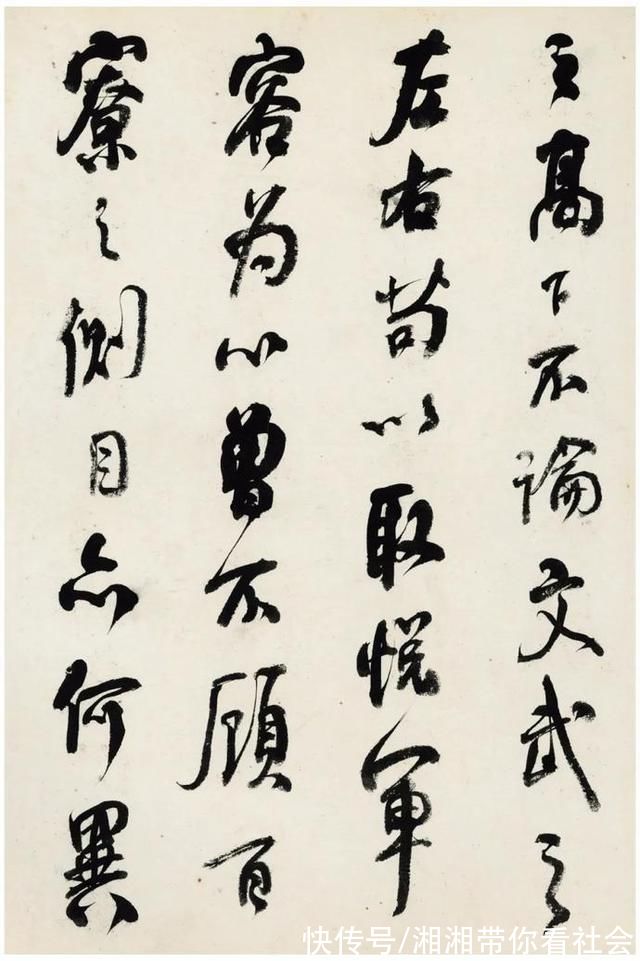 之高下不論文武之
左右苟以取悅軍
容為心曾不顧百
寮之側目亦何異
快传号/湘湘带你看社会